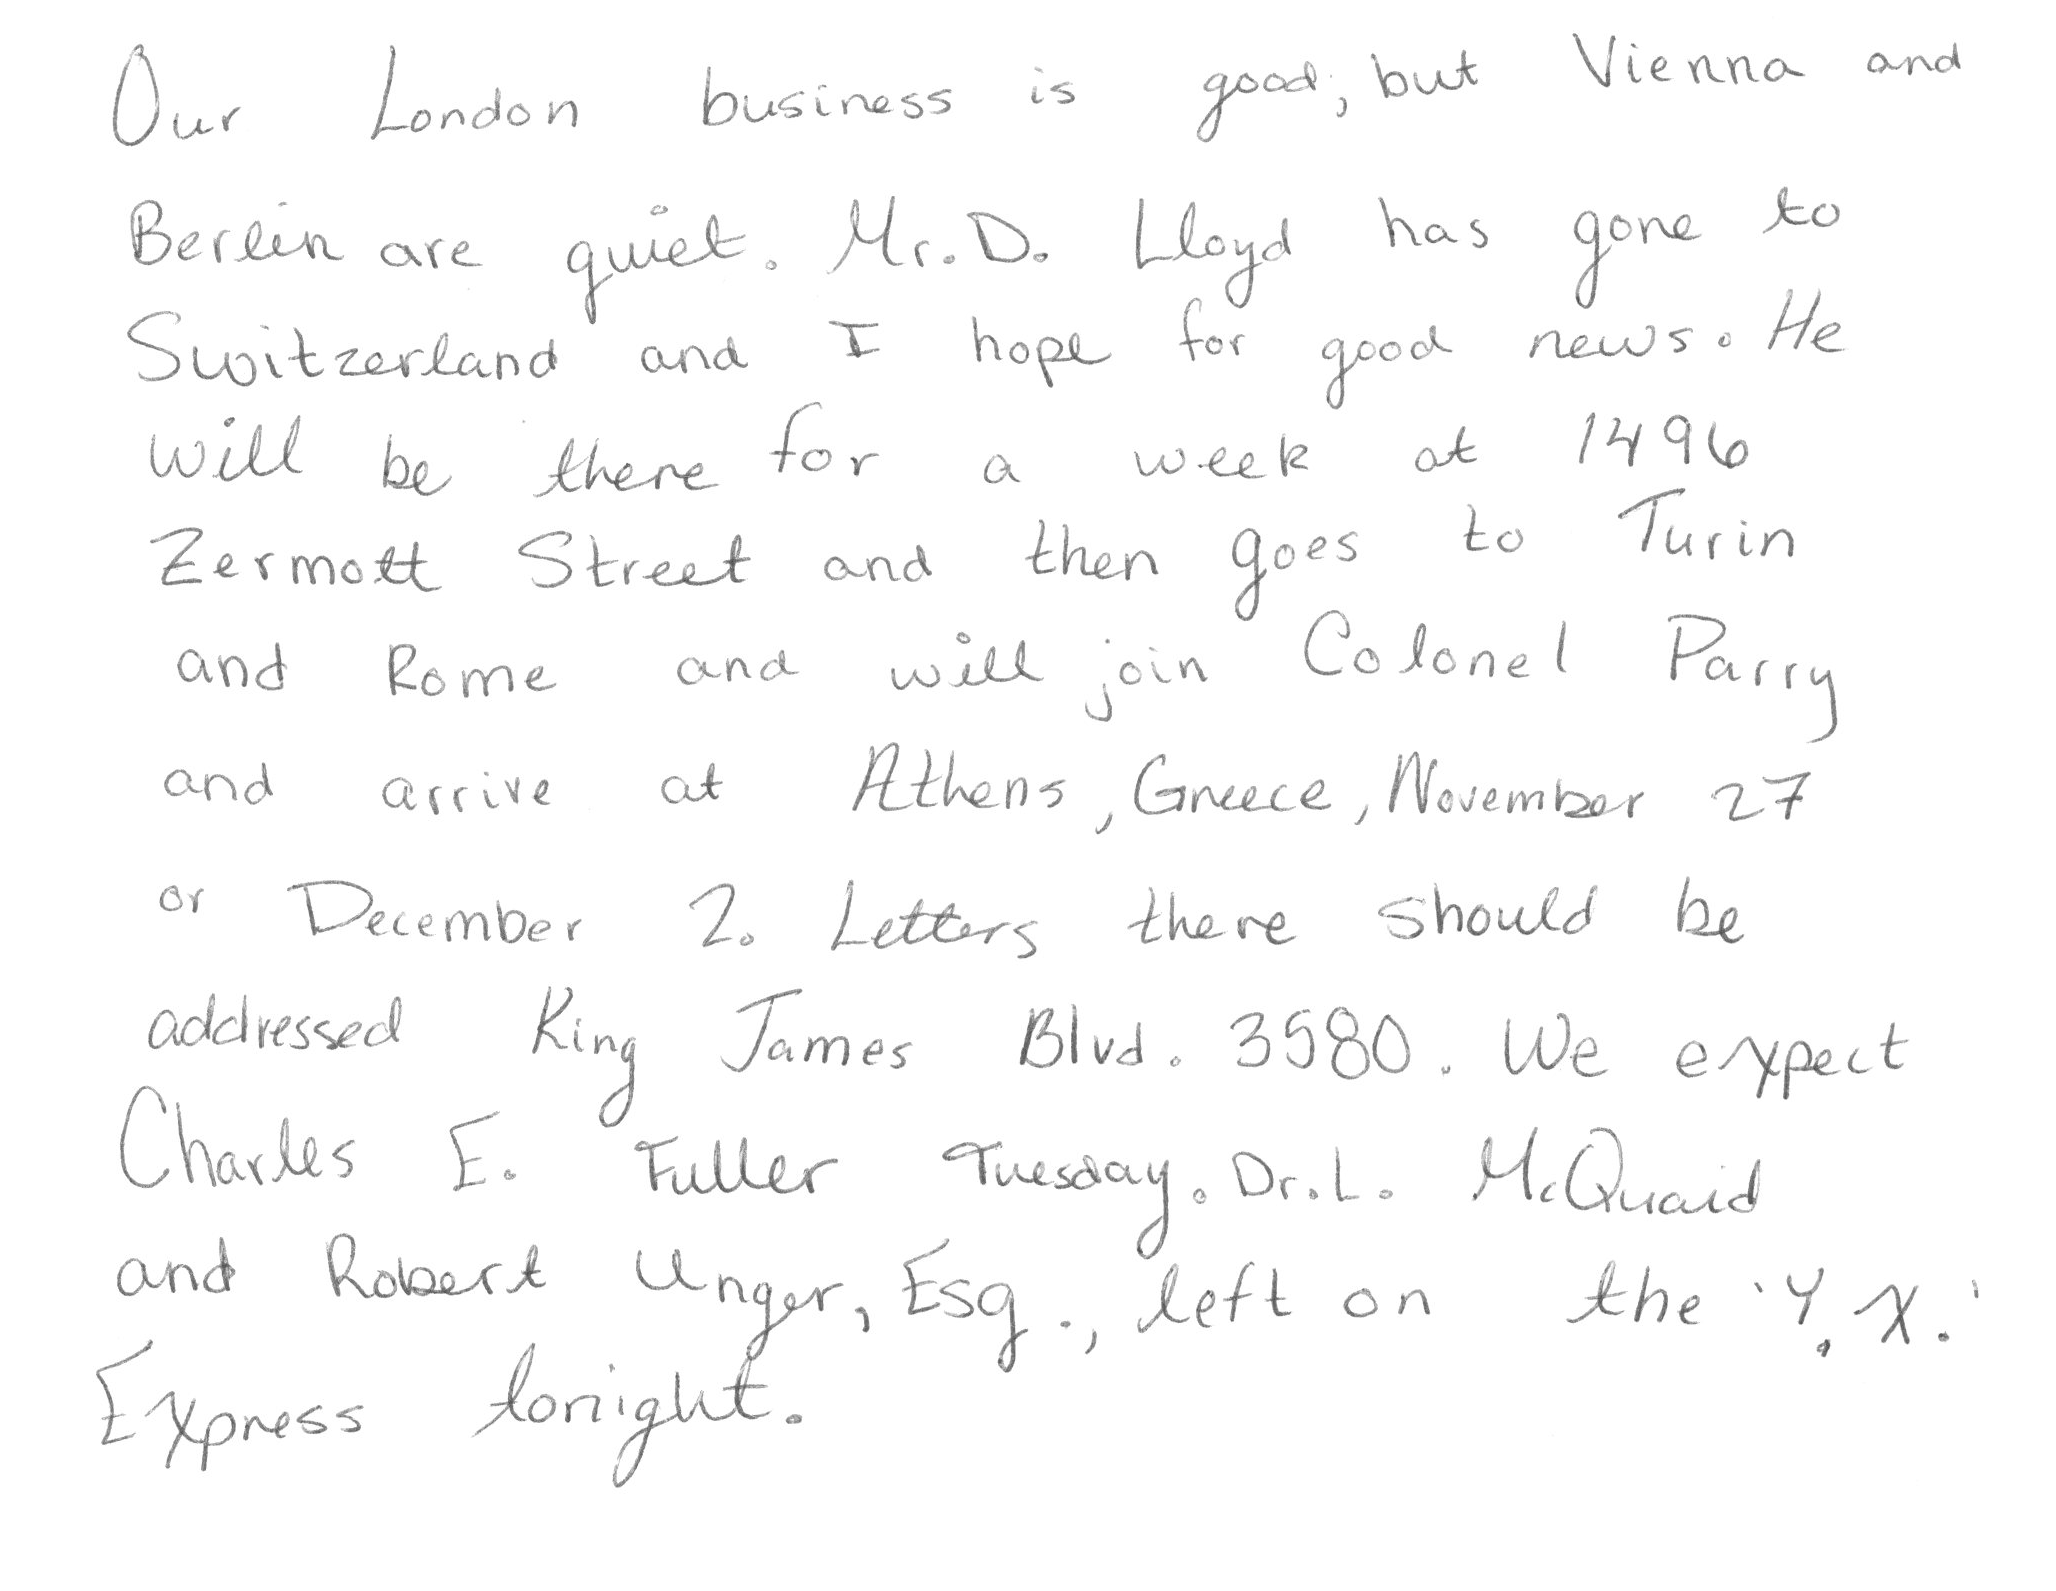 Our London business is good, but Vienna and
Berlin are quiet. Mr. D. Lloyd has gone to
Switzerland and I hope for good news. He
will be there for a week at 1496
Zermott Street and then goes to Turin
and Rome and will join Colonel Parry
and arrive at Athens, Greece, November 27
or December 2. Letters there should be
addressed King James Blvd. 3580. We expect
Charles E. Fuller Tuesday. Dr. L. McQuaid
and Robert Unger, Esq., left on the 'Y. X.'
Express tonight.